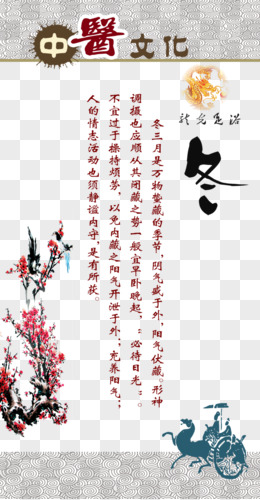 中醫文化
冬
冬三月是万物蛰藏的季节,阴气盛于外,阳气伏藏。形神
调摄也应顺从其闭藏之势一般宜早卧晚起,“必待日光”。
不宜过于操持烦劳,以免内藏之阳气开泄于外;充养阳气;
人的情志活动也须静谧内守,是有所获。